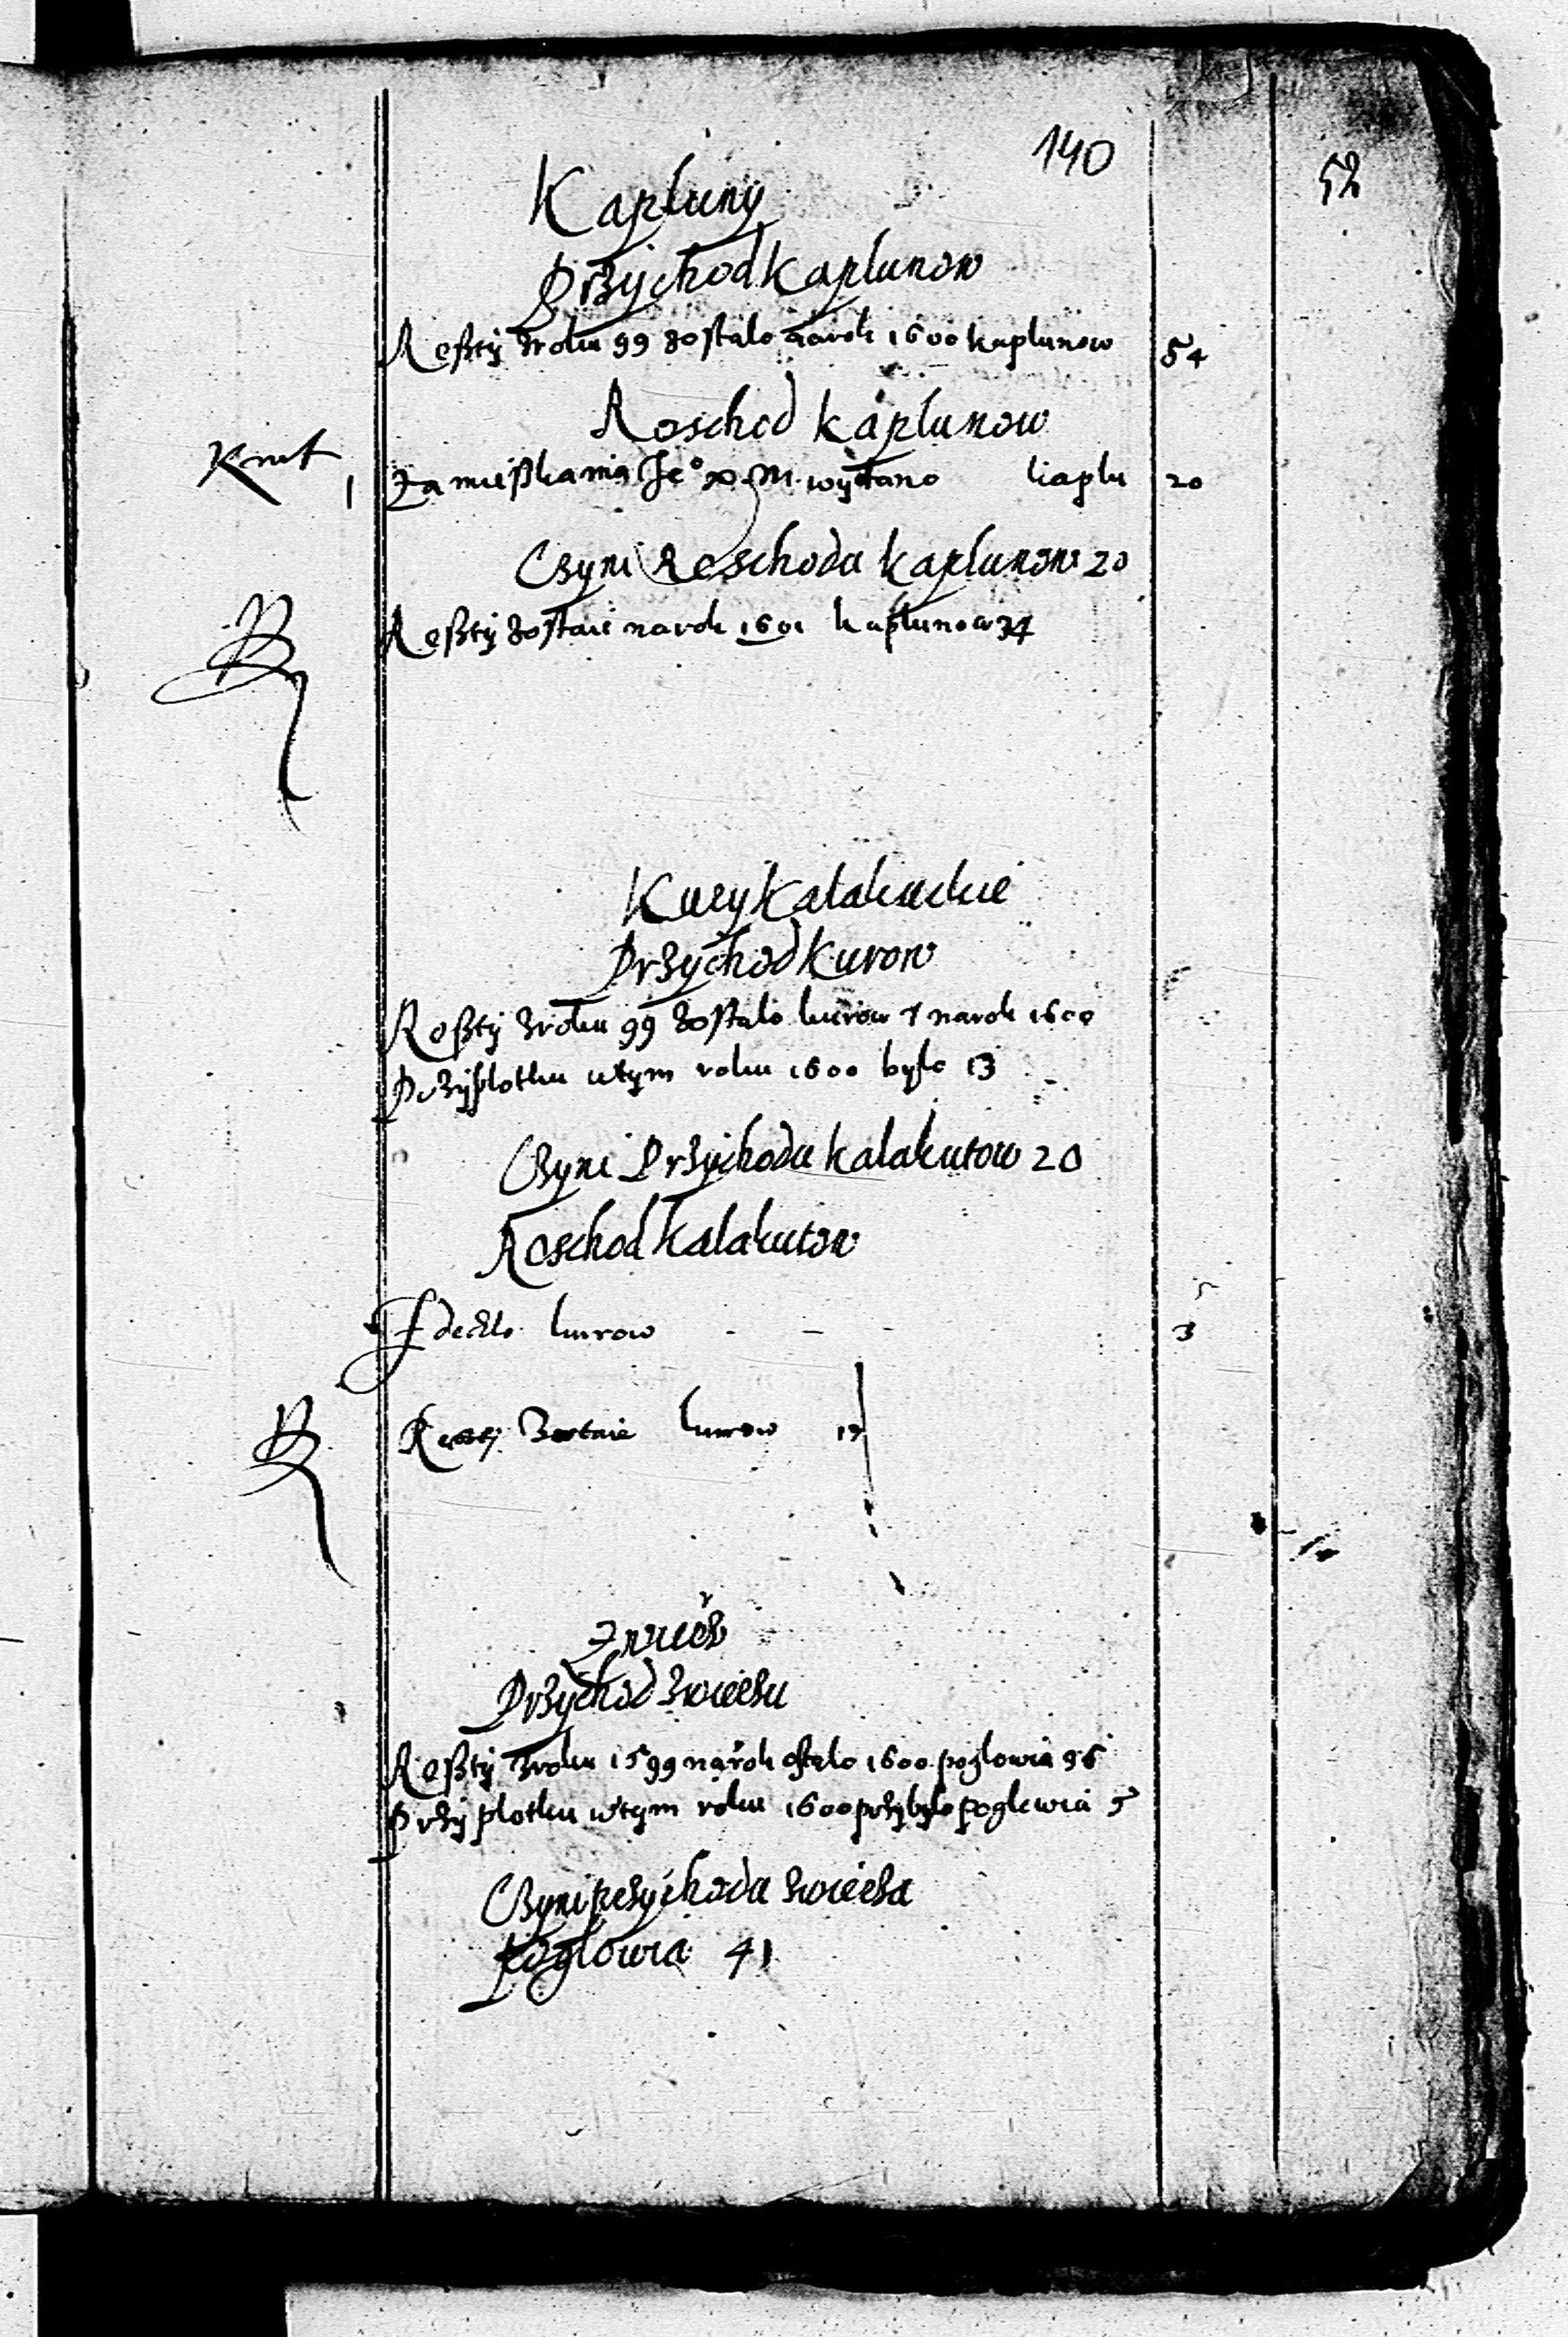 140
52
Kapluny
Przychod kaplunow
Reszty z roku 99 zostalo na rok 1600 kaplunow 54
Roschod kaplunow
Kwit
1 Za mieszkania Je° X. M. wydano kaplu 20
Czyni Roschodu kaplunow 20
Reszty zostaie na rok 1601 kaplunow 34
Kury kalakuckie
Przychod kurow
Reszty z roku 99 zostalo kurow 7 na rok 1600
Przyplotku w tym roku 1600 bylo 13
Czyni Przychodu kalakutow 20
Roschod kalakutow
Zdechlo kurow - - - 3
Reszty Zostaie kurow 17
Zwierz
Przychod zwierzu
Reszty z roku 1599 na rok ostalo 1600 poglowia 36
Przyplotku w tym roku 1600 przybylo poglowia 5
Czyni przychodu zwierza
poglowia 41